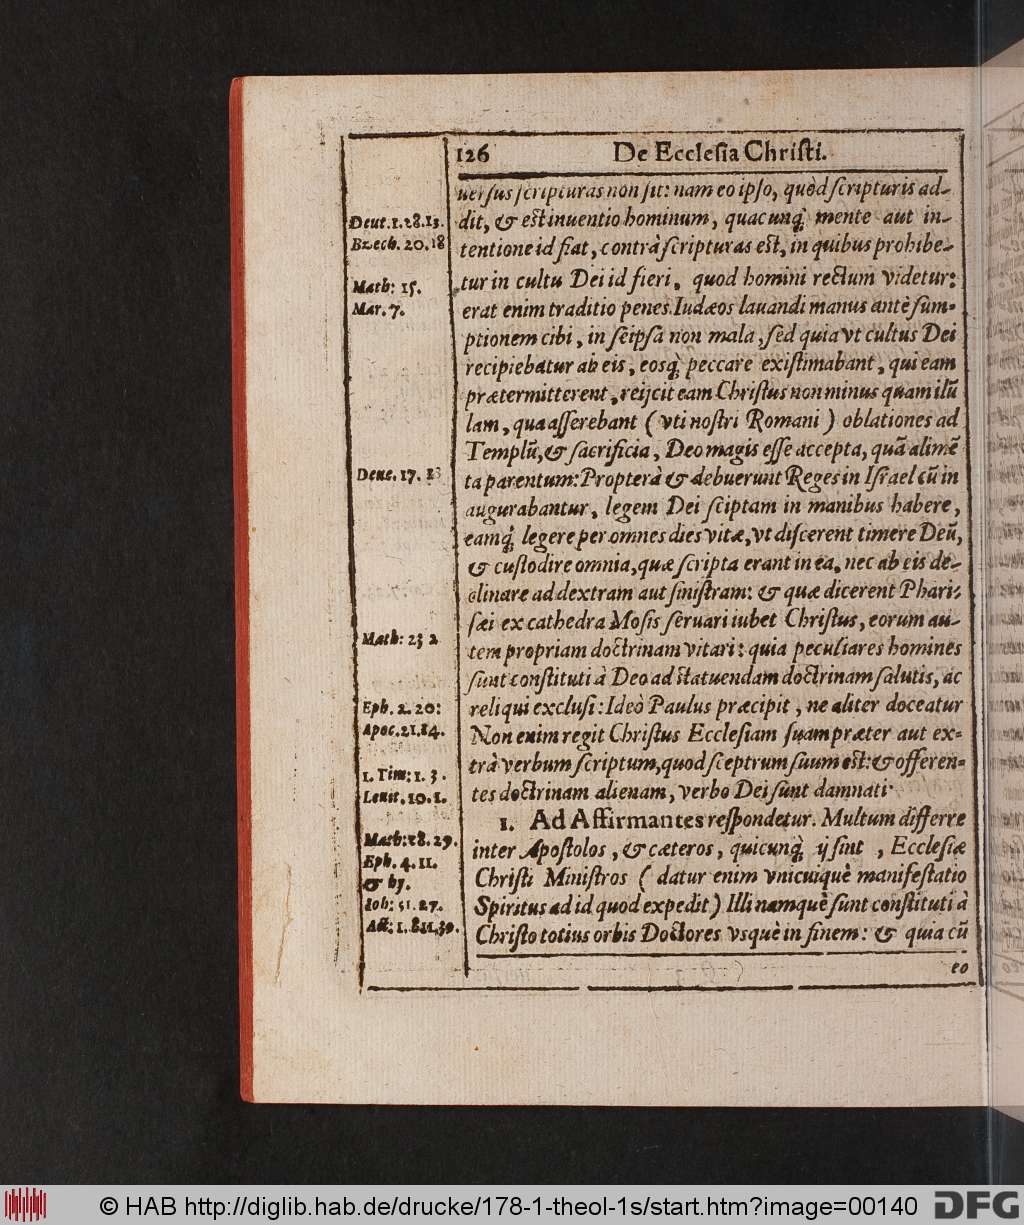 126 De Ecclesia Christi.
uersus scripturas non sit: nam eo ipso, quòd scripturis ad-
dit, & est inuentio hominum, quacunq; mente aut in-
tentione id fiat, contrà scripturas est, in quibus prohibe-
tur in cultu Dei id fieri, quod homini rectum videtur:
erat enim traditio penes Iudæos lauandi manus antè sum-
ptionem cibi, in seipsa non mala, sed quia vt cultus Dei
recipiebatur ab eis, eosq; peccare existimabant, qui eam
prætermitterent, reijcit eam Christus non minus quam ilū
lam, qua asserebant (vti nostri Romani) oblationes ad
Templū, & sacrificia, Deo magis esse accepta, quā alimē
ta parentum: Propterà & debuerunt Reges in Israel cū in
augurabantur, legem Dei sciptam in manibus habere,
eamq; legere per omnes dies vitæ, vt discerent timere Deū,
& custodire omnia, quæ scripta erant in ea, nec ab eis de-
clinare ad dextram aut sinistram: & quæ dicerent Phari-
sæi ex cathedra Mosis seruari iubet Christus, eorum au-
tem propriam doctrinam vitari: quia peculiares homines
sunt constituti à Deo ad statuendam doctrinam salutis, ac
reliqui exclusi: Ideò Paulus præcipit, ne aliter doceatur
Non enim regit Christus Ecclesiam suam præter aut ex-
trà verbum scriptum, quod sceptrum suum est: & offeren-
tes doctrinam alienam, verbo Dei sunt damnati.
1. Ad Affirmantes respondetur. Multum differre
inter Apostolos, & cæteros, quicunq; ij sint, Ecclesiæ
Christi Ministros (datur enim vnicuiquè manifestatio
Spiritus ad id quod expedit) Illi namquè sunt constituti à
Christo totius orbis Doctores vsquè in finem: & quia cū
eo
Deut. 1. 28. 13.
Ezech. 20. 18
Math: 15.
Mar. 7.
Deut. 17. 18
Math: 23 2
Eph. 2. 20:
Apoc. 21. 14.
1. Tim: 1. 3.
Leuit. 10. 1.
Math: 28. 29.
Eph. 4. 11.
Act: 1. 8
© HAB http://diglib.hab.de/drucke/178-1-theol-1s/start.htm?image=00140
DFG